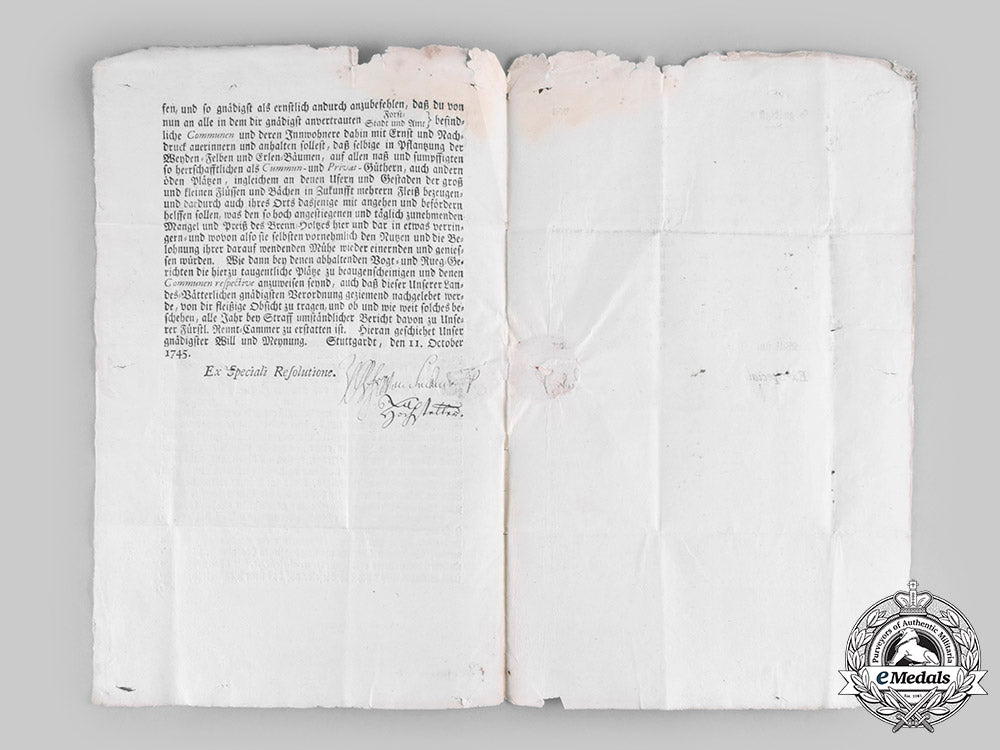 fen, und so gnädigst als ernstlich andurch anzubefehlen, daß du von
nun an alle in dem dir gnädigst anvertrauten Forst- Stadt und Amt} befind-
liche Communen und deren Innwohnere dahin mit Ernst und Nach-
druck auerinnern und anhalten sollest, daß selbige in Pflantzung der
Weyden-Felben und Erlen-Bäumen, auf allen naß und sumpffigten
so herrschafftlichen als Commun- und Privat-Güthern, auch andern
öden Plätzen, ingleichem an denen Ufern und Gestaden der groß
und kleinen Flüssen und Bächen in Zukunfft mehrern Fleiß bezeugen-
und dardurch auch ihres Orts dasjenige mit angehen und befördern
helffen sollen, was den so hoch angestiegenen und täglich zunehmenden
Mangel und Preiß des Brenn-Holtzes hier und dar in etwas verrin-
gern- und wovon also sie selbsten vornehmlich den Nutzen und die Be-
lohnung ihrer darauf wendenden Mühe wieder einernden und genies-
sen würden. Wie dann bey denen abhaltenden Vogt- und Rueg-Ge-
richten die hierzu taugentliche Plätze zu beaugenscheinigen und denen
Communen respective anzuweisen seynd, auch daß dieser Unserer Lan-
des-Vätterlichen gnädigsten Verordnung geziemend nachgelebet wer-
de, von dir fleißige Obsicht zu tragen, und ob und wie weit solches be-
schehen, alle Jahr bey Straff umständlicher Bericht davon zu Unse-
rer Fürstl. Rennt-Cammer zu erstatten ist. Hieran geschiehet Unser
gnädigster Will und Meynung. Stuttgardt, den 11. October
1745.
Ex Speciali Resolutione.
Hochstetter.
Purveyors of Authentic Militaria
eMedals